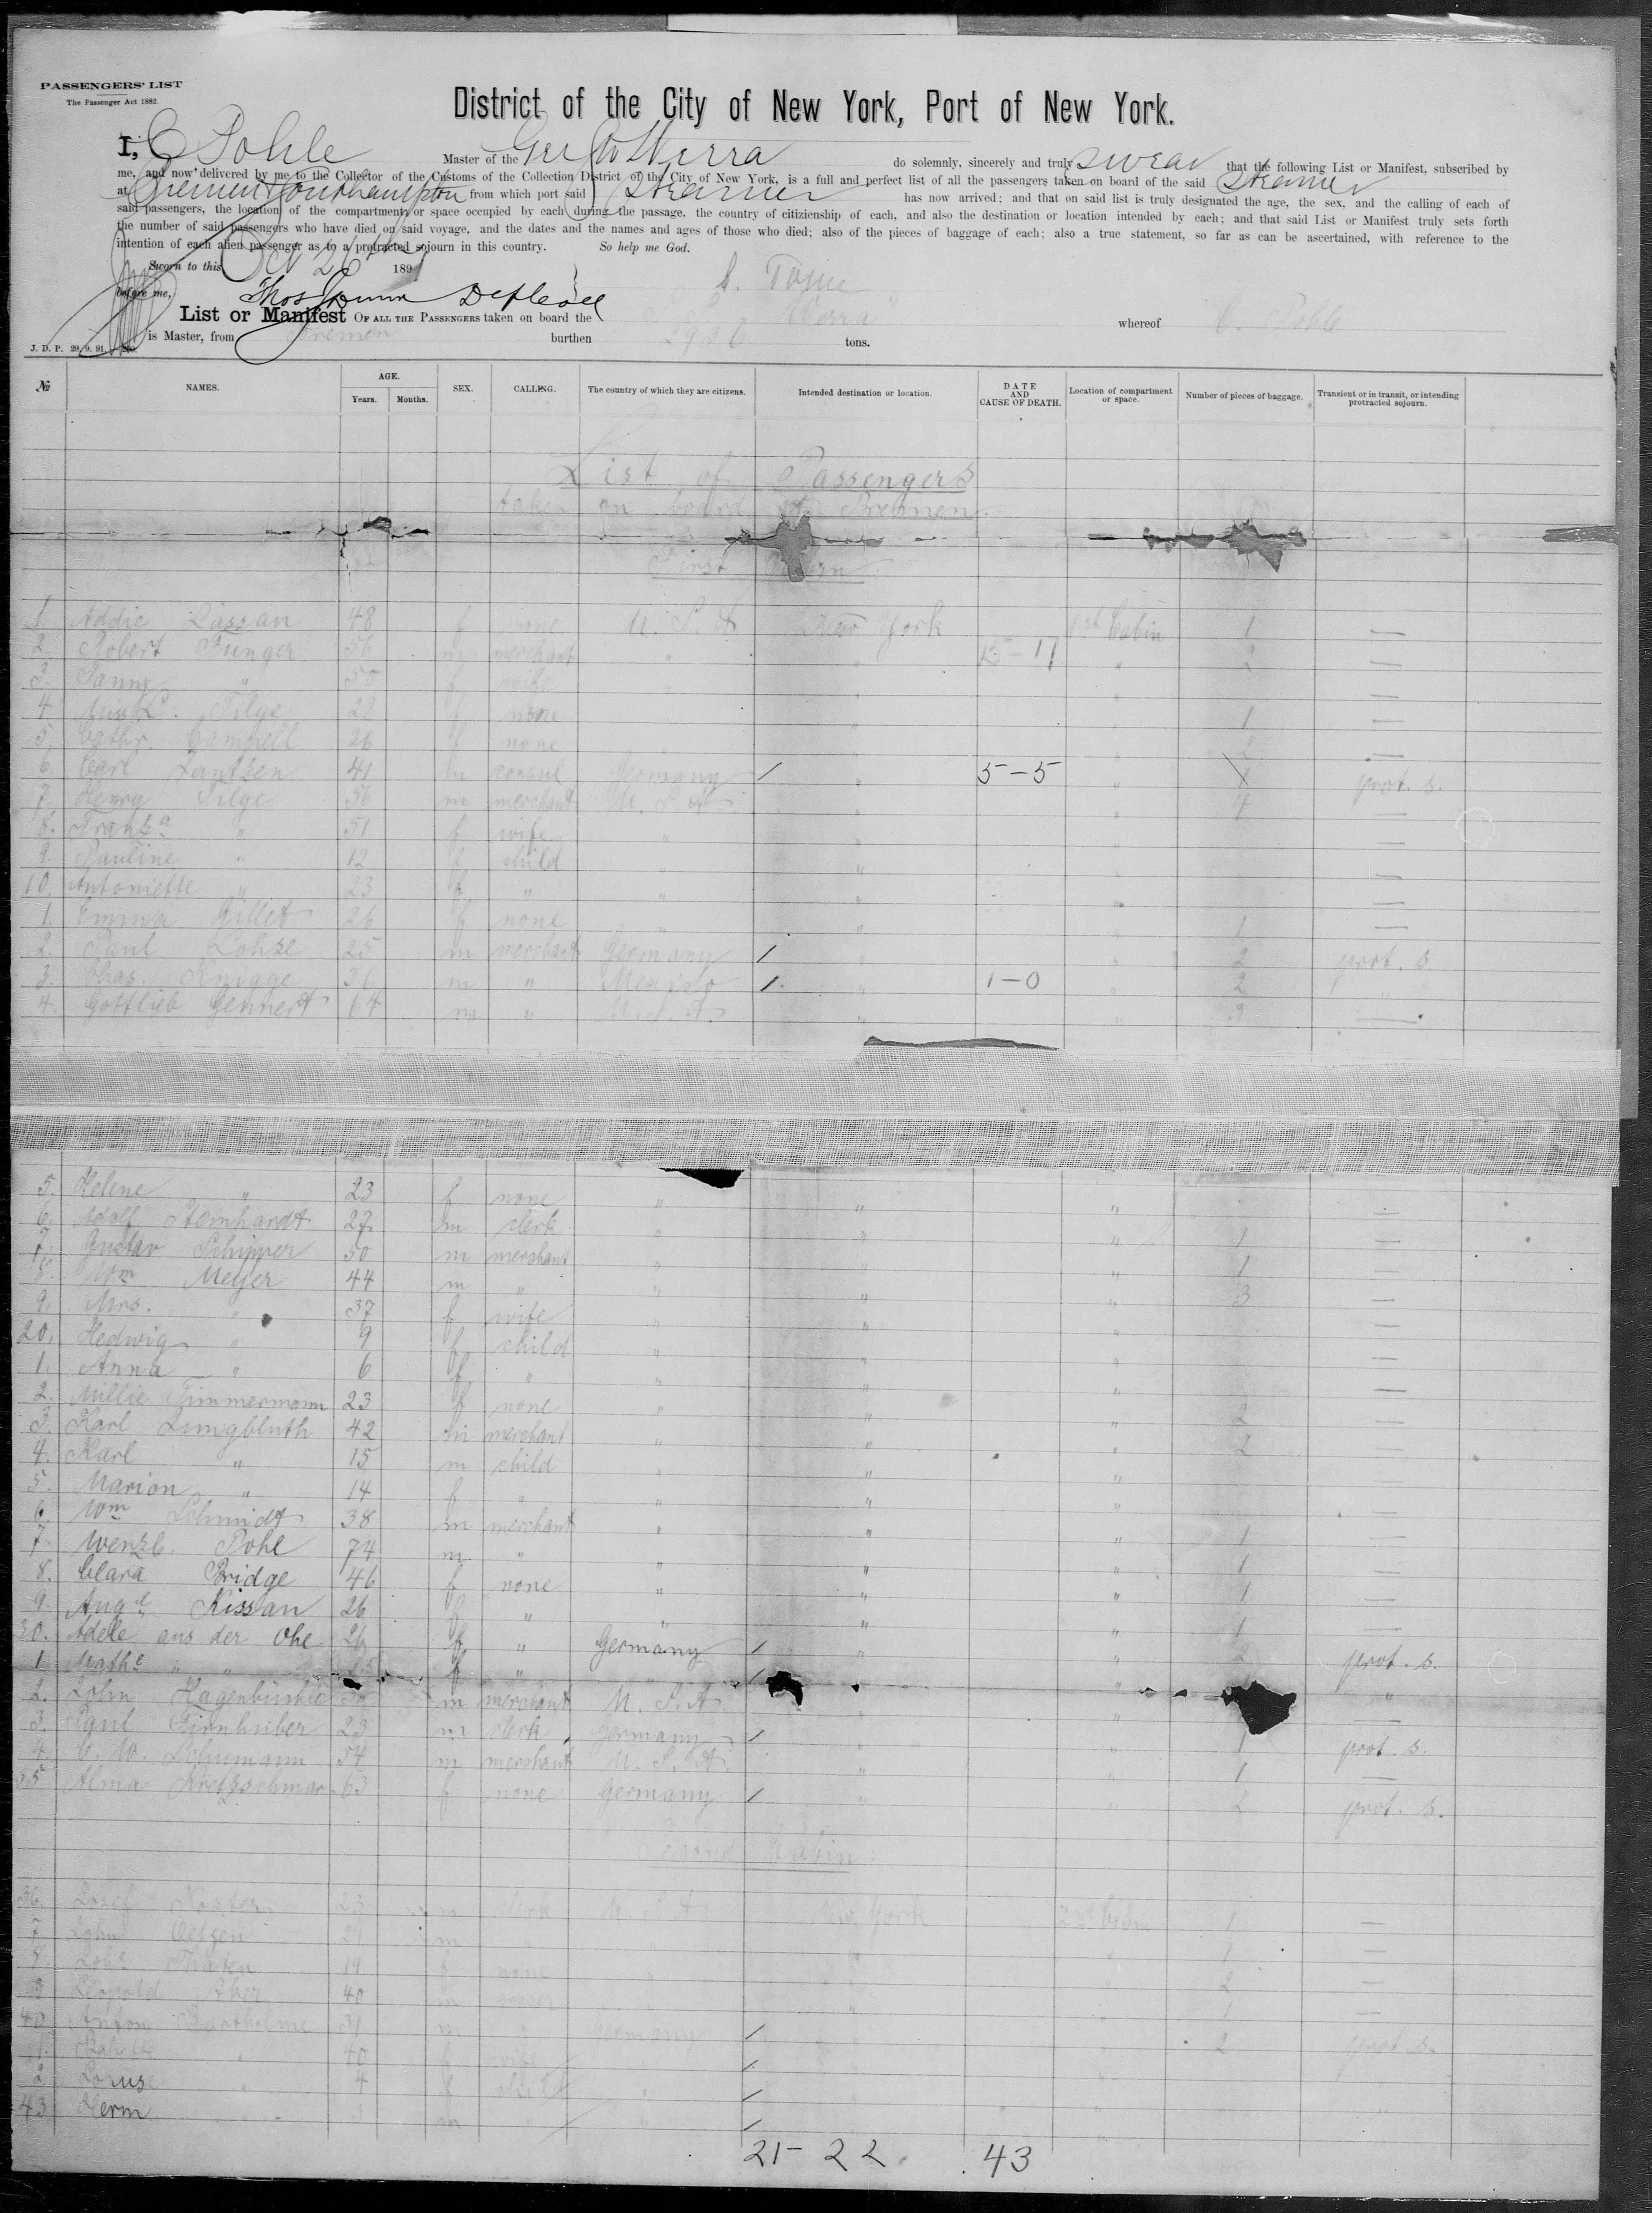 PASSENGERS' LIST
The Passenger Act 1882.
District of the City of New York, Port of New York.
I, C Pohle Master of the Ger Werra do solemnly, sincerely and truly swear that the following List or Manifest, subscribed by
me, and now delivered by me to the Collector of the Customs of the Collection District of the City of New York, is a full and perfect list of all the passengers taken on board of the said Steamer
at Bremen Southampton from which port said Steamer has now arrived; and that on said list is truly designated the age, the sex, and the calling of each of
said passengers, the location of the compartment or space occupied by each during the passage, the country of citizienship of each, and also the destination or location intended by each; and that said List or Manifest truly sets forth
the number of said passengers who have died on said voyage, and the dates and the names and ages of those who died; also of the pieces of baggage of each; also a true statement, so far as can be ascertained, with reference to the
intention of each alien passenger as to a protracted sojourn in this country. So help me God.
Sworn to this Oct 26th 1891
before me, Thos
List or Manifest OF ALL THE PASSENGERS taken on board the Werra whereof C. Pohle
is Master, from Bremen burthen tons.
J. D. P. 29. 9. 91.
№ NAMES. AGE. Years. Months. SEX. CALLING. The country of which they are citizens. Intended destination or location. DATE AND CAUSE OF DEATH. Location of compartment or space. Number of pieces of baggage. Transient or in transit, or intending protracted sojourn.
List of Passengers
taken on board at Bremen.
First Cabin
1. Addie Lassan 48 f none U. S. A. New York 1st Cabin 1 —
2. Robert Funger 56 m merchant " " 15-17 " 2 —
3. Fanny " 50 f wife " " " —
4. Miss L. Tilge 28 f none " " " 1 —
5. Cathr. Campell 26 f none " " " 2 —
6. Carl Lantzen 41 m consul Germany / " 5-5 " prot. s.
7. Henry Tilge 56 m merchant U. S. A. " " 4 —
8. " 51 f wife " " " —
9. Pauline " 12 f child " " " —
10. Antoniette " 23 f " " " " —
1. Emma Gillet 26 f none " " " 1 —
2. Paul Lohse 25 m merchant Germany / " " 2 prot. s
3. Chas. Knigge 36 m " Mexico / " 1-0 " 2 "
4. Gottlieb Gennert 64 m " U. S. A. " " 3 —
5. Helene " 23 f none " " " —
6. Adolf Steinhardt 27 m clerk " " " 1 —
7. Gustav Schipper 50 m merchant " " " 1 —
8. Wm Meyer 44 m " " " " 3 —
9. Mrs. " 37 f wife " " " —
20. Hedwig " 9 f child " " " —
1. Anna " 6 f " " " " —
2. Millie Timmermann 23 f none " " " 2 —
3. Karl Lungbluth 42 m merchant " " " 2 —
4. Karl " 15 m child " " " —
5. Marion " 14 f " " " " —
6. Wm Schmidt 38 m merchant " " " 1 —
7. Wenzl. Pohl 74 m " " " " 1 —
8. Clara Bridge 46 f none " " " 1 —
9. Aug e Kissan 26 f " " " " 1 —
30. Adele aus der Ohe 26 f " Germany / " " 2 prot. s.
1. Mathe " " f " " / " " "
2. John m merchant U. S. A. " " —
3. Paul Firnhuber 23 m clerk Germany / " " 1 prot. s.
4. C. W. Schumann 54 m merchant U. S. A. " " 1 —
35 Alma Kretzschmar 63 f none Germany / " " 2 prot. s.
Second Cabin
36. Josef 23 m clerk U. S. A. New York 2nd Cabin 1 —
7. John Oetgen 21 m " " 1 —
8. Thaten 19 f none 2 —
9. Leopold 40 m 1 —
40. Anton Bartholme 31 m Germany / 2 prot. s.
1. " 40 f wife /
2. Louise " 4 f child " /
43 Herm 3 m " /
21-22. 43